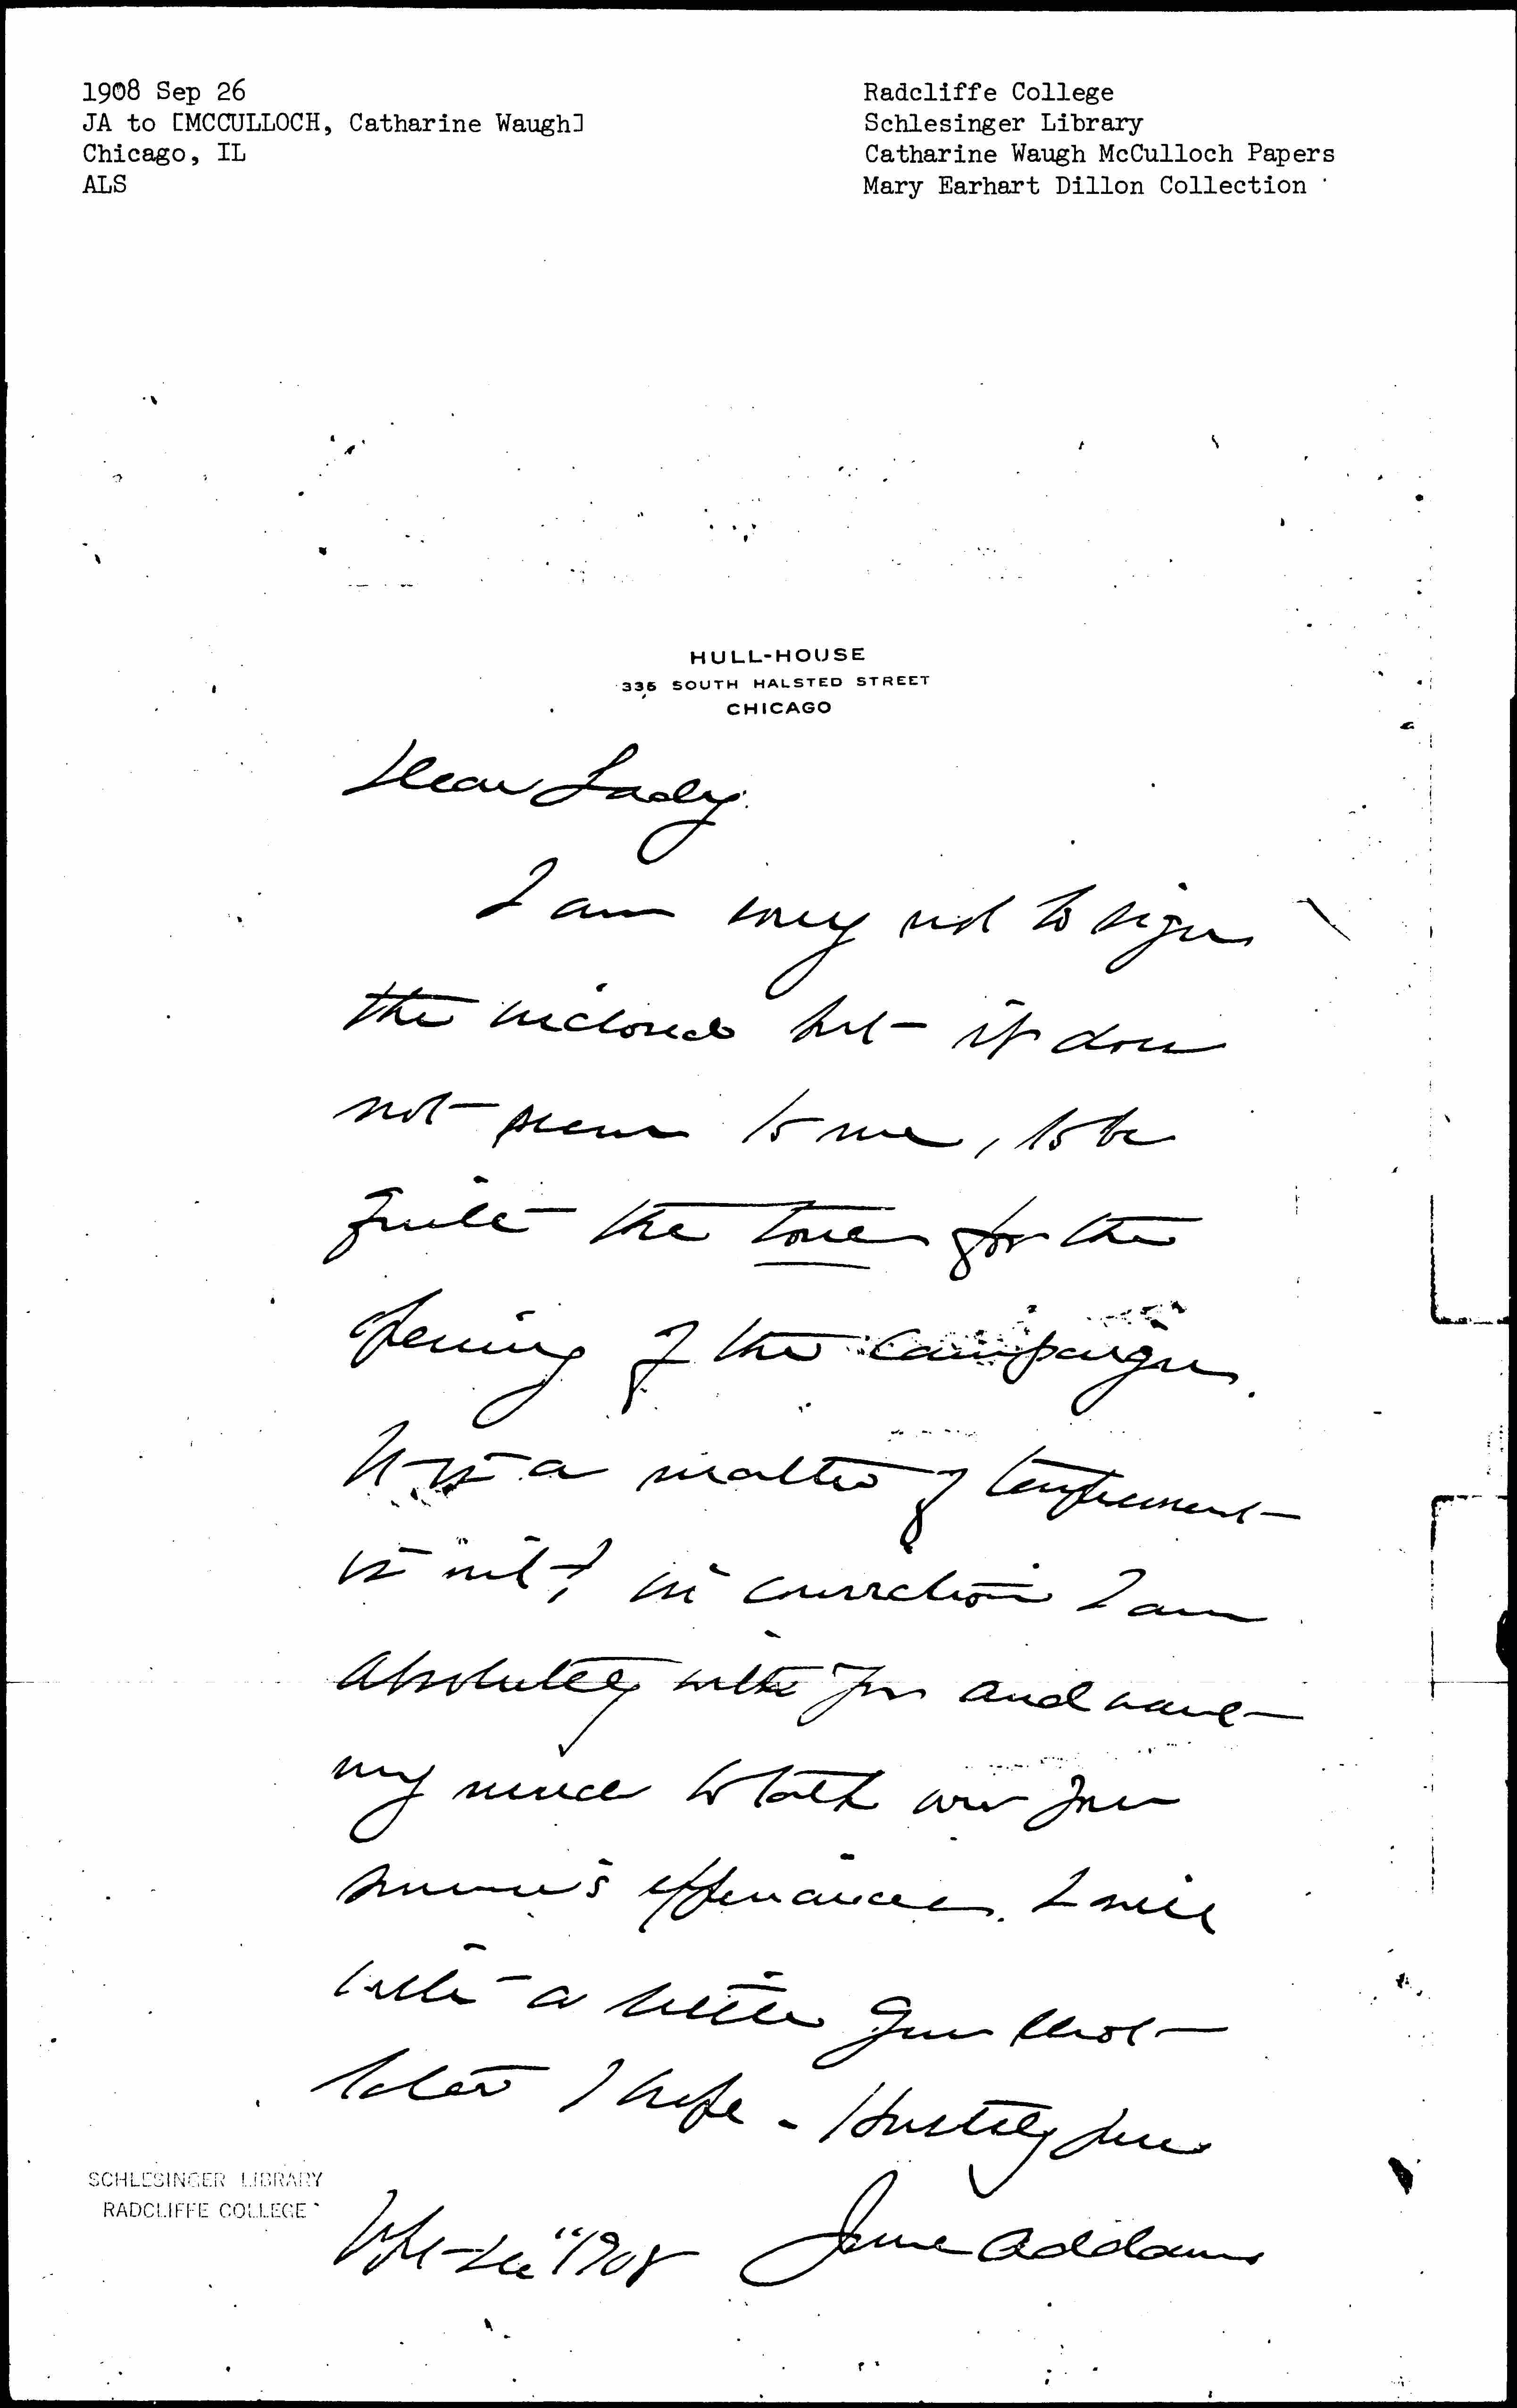 1908 Sep 26
JA to [MCCULLOCH, Catharine Waugh]
Chicago, IL
ALS
Radcliffe College
Schlesinger Library
Catharine Waugh McCulloch Papers
Mary Earhart Dillon Collection
HULL-HOUSE
335 SOUTH HALSTED STREET
CHICAGO
Dear Lady
I am sorry not to sign
the inclosed but it does
not seem to me, to be
quite the tone for the
opening of the campaign.
It is a matter of temprement
is it not? in conviction I am
absolutely with you and want
very much to talk over your
summer's experiences. I will
write a letter
later I hope - Hastily yours
Jane Addams
Sept 26" 1908
SCHLESINGER LIBRARY
RADCLIFFE COLLEGE